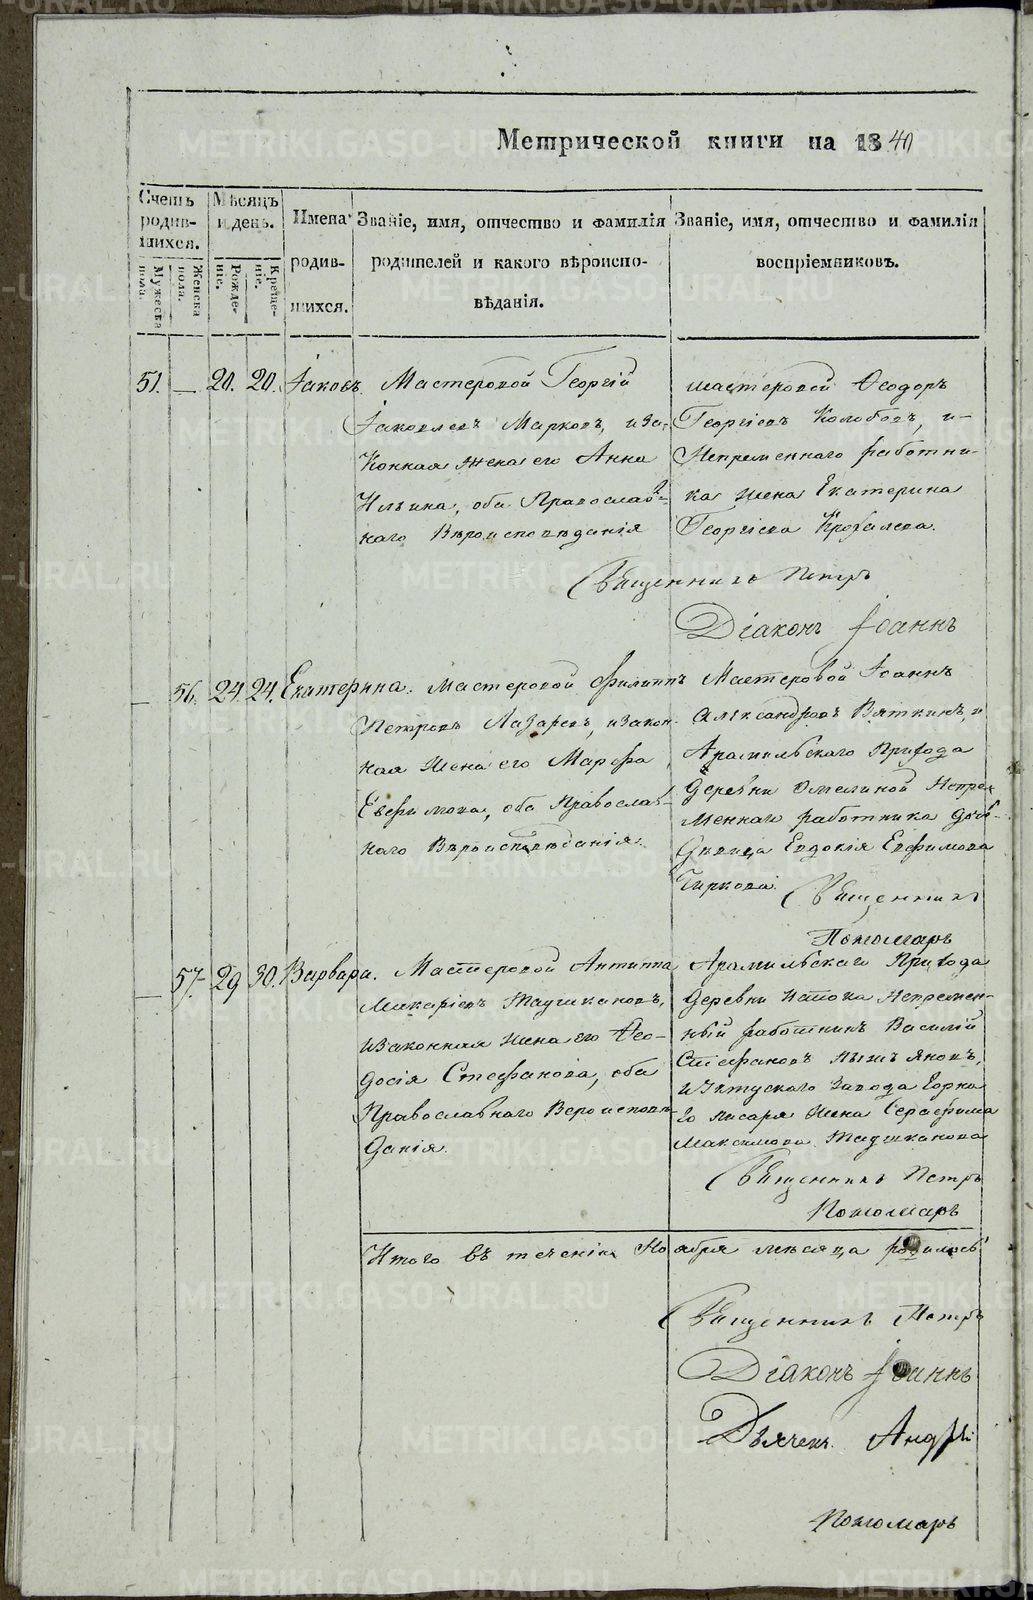 Метрической книги на 1840
Счетъ родив-шихся.
Мужеска пола.
Женска пола.
Мѣсяцъ и день.
Рожде-ніе.
Креще-ніе.
Имена родив-шихся.
Званіе, имя, отчество и фамилія
родителей и какого вѣроиспо-
вѣданія.
Званіе, имя, отчество и фамилія
воспріемниковъ.
51. — 20. 20. Іаковъ.
Мастеровой Георгій
Іаковлевъ Марковъ, и за-
конная жена его Анна
Ильина, оба Православ-
наго Вѣроисповѣданія
мастеровой Ѳеодоръ
Георгіевъ Колобовъ, и
Непременнаго работни-
ка жена Екатерина
Георгіева
Священникъ Петръ
Діаконъ Іоаннъ
— 56. 24. 24. Екатерина.
Мастеровой Филиппъ
Петровъ Лазаревъ, и закон-
ная жена его Марѳа
Евфимова, оба Православ-
наго Вѣроисповѣданія.
Мастеровой Іоаннъ
Александровъ Вяткинъ, и
Арамильскаго Прихода
деревни Непре-
меннаго работника доч
девица Евдокія Евфимова
Чиркова.
Священникъ
Пономарь
— 57. 29 30. Варвара.
Мастеровой Антипа
Макаріевъ Ташкановъ,
и законная жена его Ѳео-
досія Стефанова, оба
Православнаго Вероисповѣ-
данія.
Арамильскаго Прихода
деревни Непремен-
ный работникъ Василій
Стефановъ
и Уктускаго Завода Горна
го писаря жена Серафима
Максимова Ташканова
Священникъ Петръ
Пономарь
Итого въ теченіи Ноября месяца родилось
Священникъ Петръ
Діаконъ Іоаннъ
Дьячекъ Андрей
Пономарь
METRIKI.GASO-URAL.RU